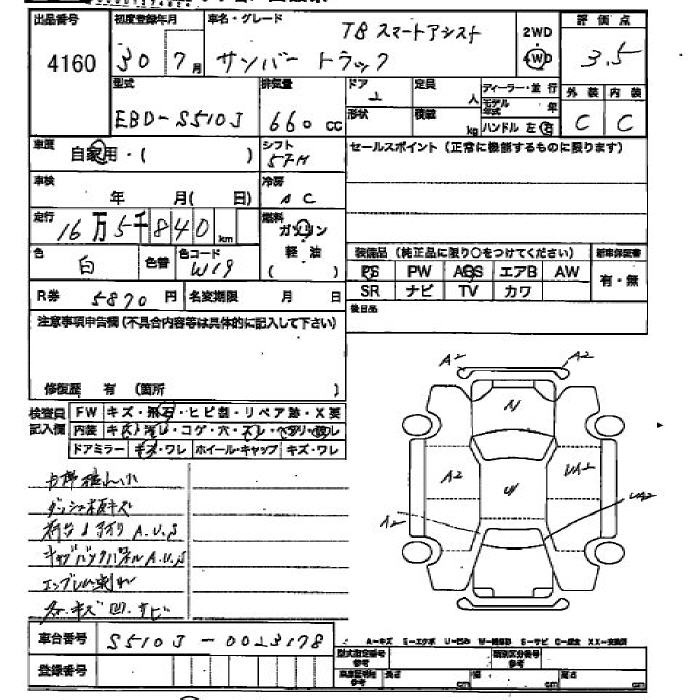 出品番号 初度登録年月 車名・グレード TB スマートアシスト 2WD 評価点
4160 30 7月 サンバー トラック 4WD 3.5
型式 排気量 ドア 定員 ディーラー・並行 外装 内装
EBD-S510J 660cc 2 人 モデル年式 年 C C
形状 積載 kg ハンドル 左 右
車歴 自家用・( ) シフト 5FM セールスポイント(正常に機能するものに限ります)
車検 年 月( 日) 冷房 AC
走行 16万5千840km 燃料 ガソリン
軽油
( )
色 白 色替 色コード W19
装備品 (純正品に限り○をつけてください) 新車保証書
PS PW ABS エアB AW 有・無
SR ナビ TV カワ
R券 5870円 名変期限 月 日
後日品
注意事項申告欄(不具合内容等は具体的に記入して下さい)
修復歴 有 (箇所 )
検査員 FW キズ・飛石・ヒビ割・リペア跡・X要
記入欄 内装 キズ・汚レ・コゲ・穴・スレ・ヘタリ・ワレ
ドアミラー キズ・ワレ ホイール・キャップ キズ・ワレ
A2 A2
A2 UA2
A2 UA2
ダッシュ板キズ
荷台 A.U.S
キャブバックパネル A.U.S
エンブレム剥れ
キズ 凹 サビ
車台番号 S510J-0023178
A-キズ E-エクボ U-凹み S-サビ XX-交換済
登録番号 型式指定番号 参考 類別区分番号 参考
長さ cm 幅 cm 高さ cm